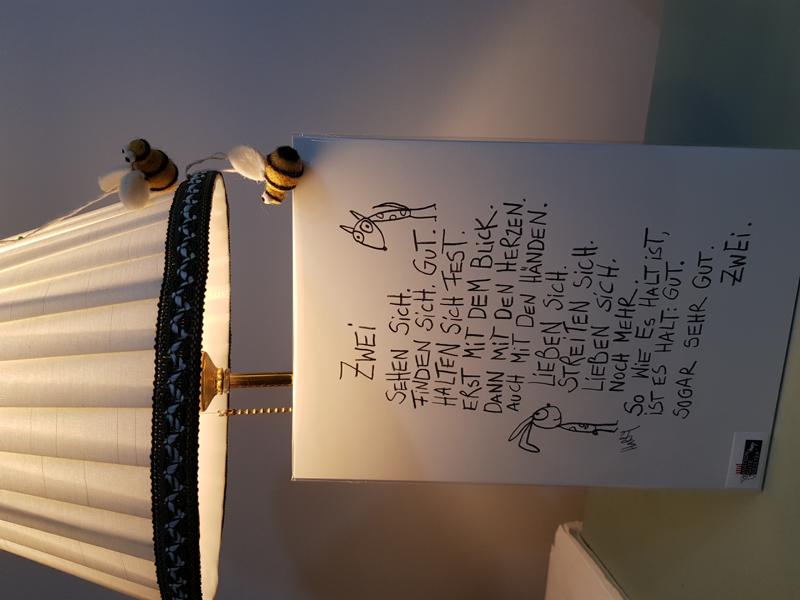 ZWEi
SEHEN SiCH.
FiNDEN SiCH. GUT.
HALTEN SiCH FEST.
ERST MiT DEM BLiCK.
DANN MiT DEN HERZEN.
AUCH MiT DEN HÄNDEN.
LiEBEN SiCH.
STREiTEN SiCH.
LiEBEN SiCH.
NOCH MEHR.
SO WiE ES HALT iST,
iST ES HALT: GUT.
SOGAR SEHR GUT.
ZWEi.
HARRY